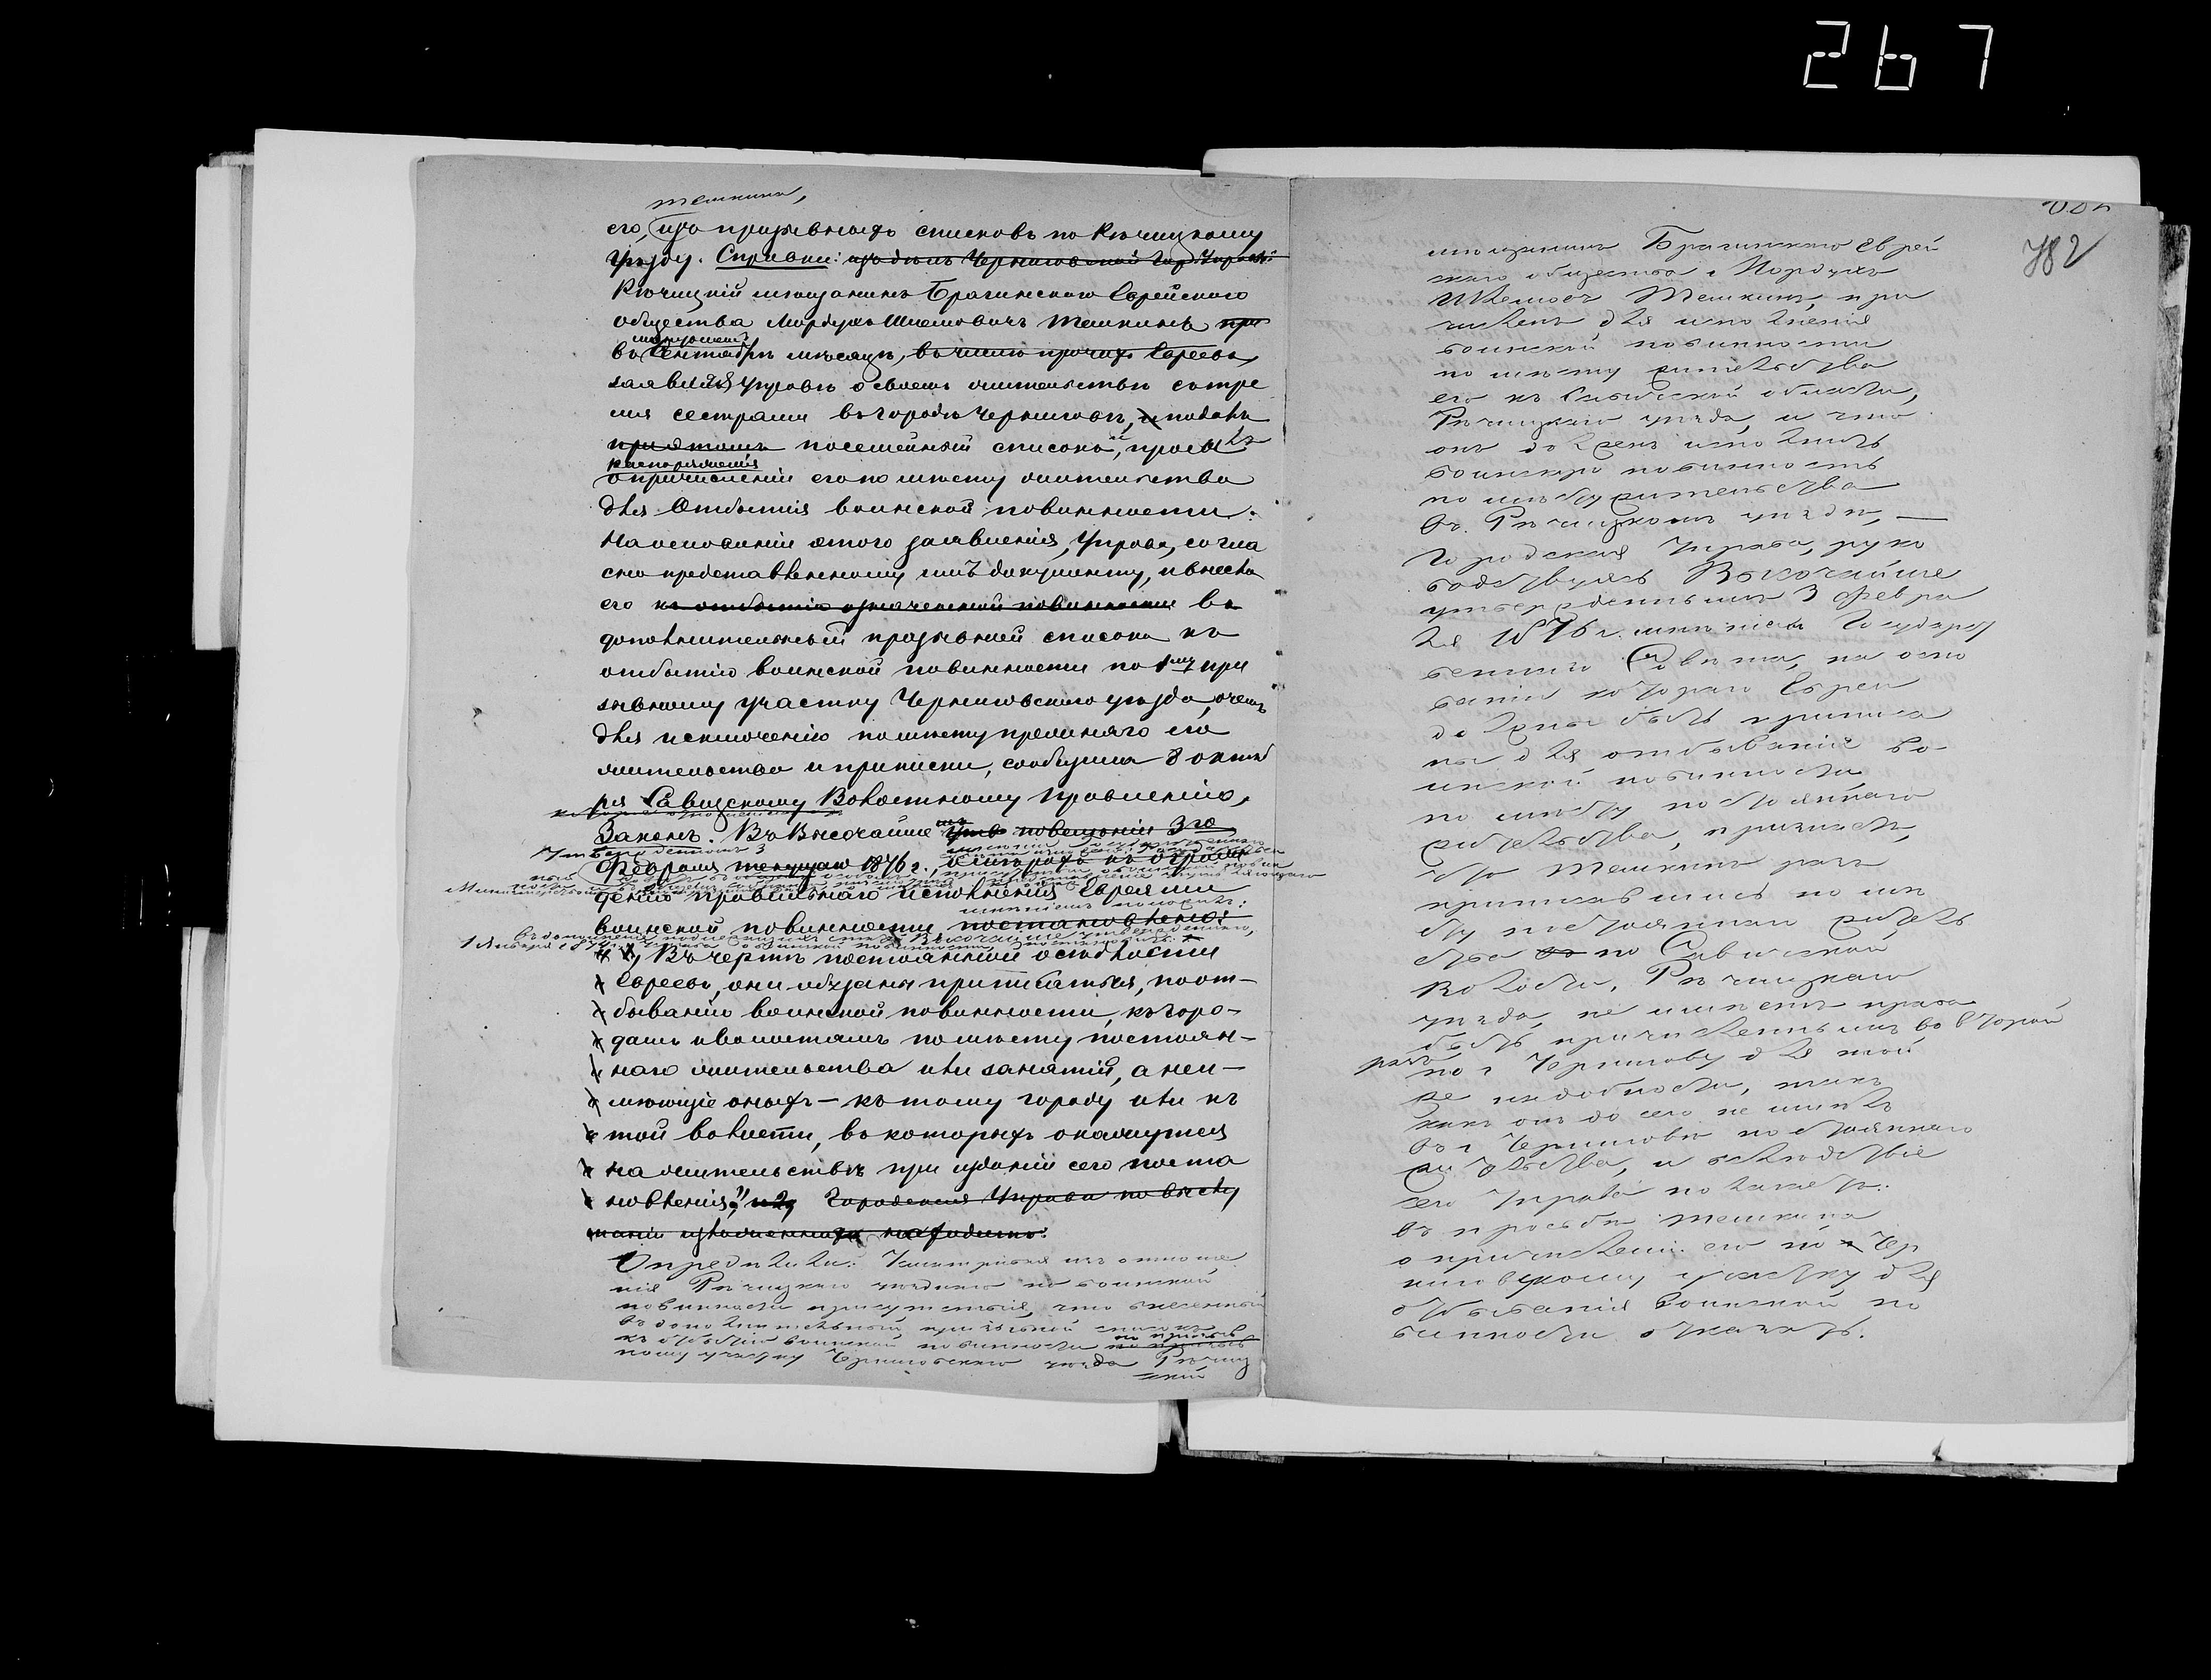 267
Темкина,
его, изъ призывныхъ списковъ по Рѣчицкому
Уѣзду. Справки: изъ дѣлъ Черниговской Гор. Управы:
Рѣчицкій мѣщанинъ Брагинскаго Еврейскаго
общества Мордухъ Шлемовичъ Темкинъ при
въ Сентябрѣ мѣсяцѣ, въ числѣ прочихъ Евреевъ,
заявилъ Управѣ о своемъ жительствѣ съ тре
мя сестрами въ городѣ Черниговѣ, и подавъ
при этомъ посемейный списокъ, просилъ
распоряженія
о причисленіи его по мѣсту жительства
для отбытія воинской повинности.
На основаніи этого заявленія, Управа, соглa
сно представленному имъ документу, и внесла
его къ отбытію означенной повинности въ
дополнительный призывной списокъ къ
отбытію воинской повинности по 1му при
зывному участку Черниговскаго уѣзда, о чемъ
для исключенія по мѣсту прежняго его
жительства и приписки, сообщила 8 октяб
ря Савицкому Волостному Правленію,
Законъ. Въ Высочайше повелѣніи 3го
утвержденномъ 3
Февраля текущаго 1876 г., о мѣрахъ къ огражд
денію правильнаго исполненія Евреями
воинской повинности постановлено:
1, Въ чертѣ постоянной осѣдлости
Евреевъ, они обязаны приписаться, по от-
быванію воинской повинности, къ горо-
дамъ и волостямъ по мѣсту постоян-
наго жительства или занятій, а неи-
мѣющіе оныхъ – къ тому городу или къ
той волости, въ которыхъ окажутся
на жительствѣ при изданіи сего поста
новленія", и 2, Городская Управа по выслу
шаніи изложеннаго находитъ:
Опредѣлили: Усматривая изъ отноше
нія Рѣчицкаго уѣзднаго по воинской
повинности присутствія, что внесенный
въ дополнительный призывной списокъ
къ отбытію воинской повинности по призыв
ному участку Черниговскаго уѣзда Рѣчиц
кій
782
мѣщанинъ Брагинскаго Еврей
скаго общества Мордухъ
Шлемовъ Темкинъ, при
численъ для исполненія
воинской повинности
по мѣсту жительства
его къ Савицкой области,
Рѣчицкаго уѣзда, и что
онъ долженъ исполнить
воинскую повинность
по мѣсту жительства
въ Рѣчицкомъ уѣздѣ, —
Городская Управа, руко
водствуясь Высочайше
утвержденнымъ 3 Февра
ля 1876 г. мнѣніемъ Государст
веннаго Совѣта, на осно
ваніи котораго Евреи
должны быть приписа
ны для отбыванія во-
инской повинности
по мѣсту постояннаго
жительства,
что Темкинъ разъ
приписавшись по мѣ
сту постояннаго житель
ства по Савицкой
волости, Рѣчицкаго
уѣзда, не имѣетъ права
быть причисленнымъ во второй
разъ
по г Чернигову для той
же надобности, такъ
какъ онъ до сего не имѣлъ
въ г Черниговѣ постояннаго
жительства, и вслѣдствіе
сего Управа полагаетъ:
въ просьбѣ Темкина
о причисленіи его по Чер
ниговскому участку для
отбыванія воинской по
винности отказать.